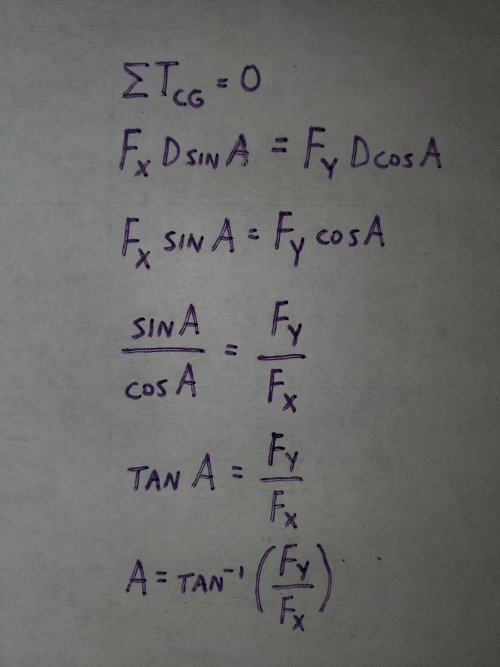 ΣT_CG = 0
F_X D SIN A = F_Y D COS A
F_X SIN A = F_Y COS A
SIN A / COS A = F_Y / F_X
TAN A = F_Y / F_X
A = TAN⁻¹ (F_Y / F_X)